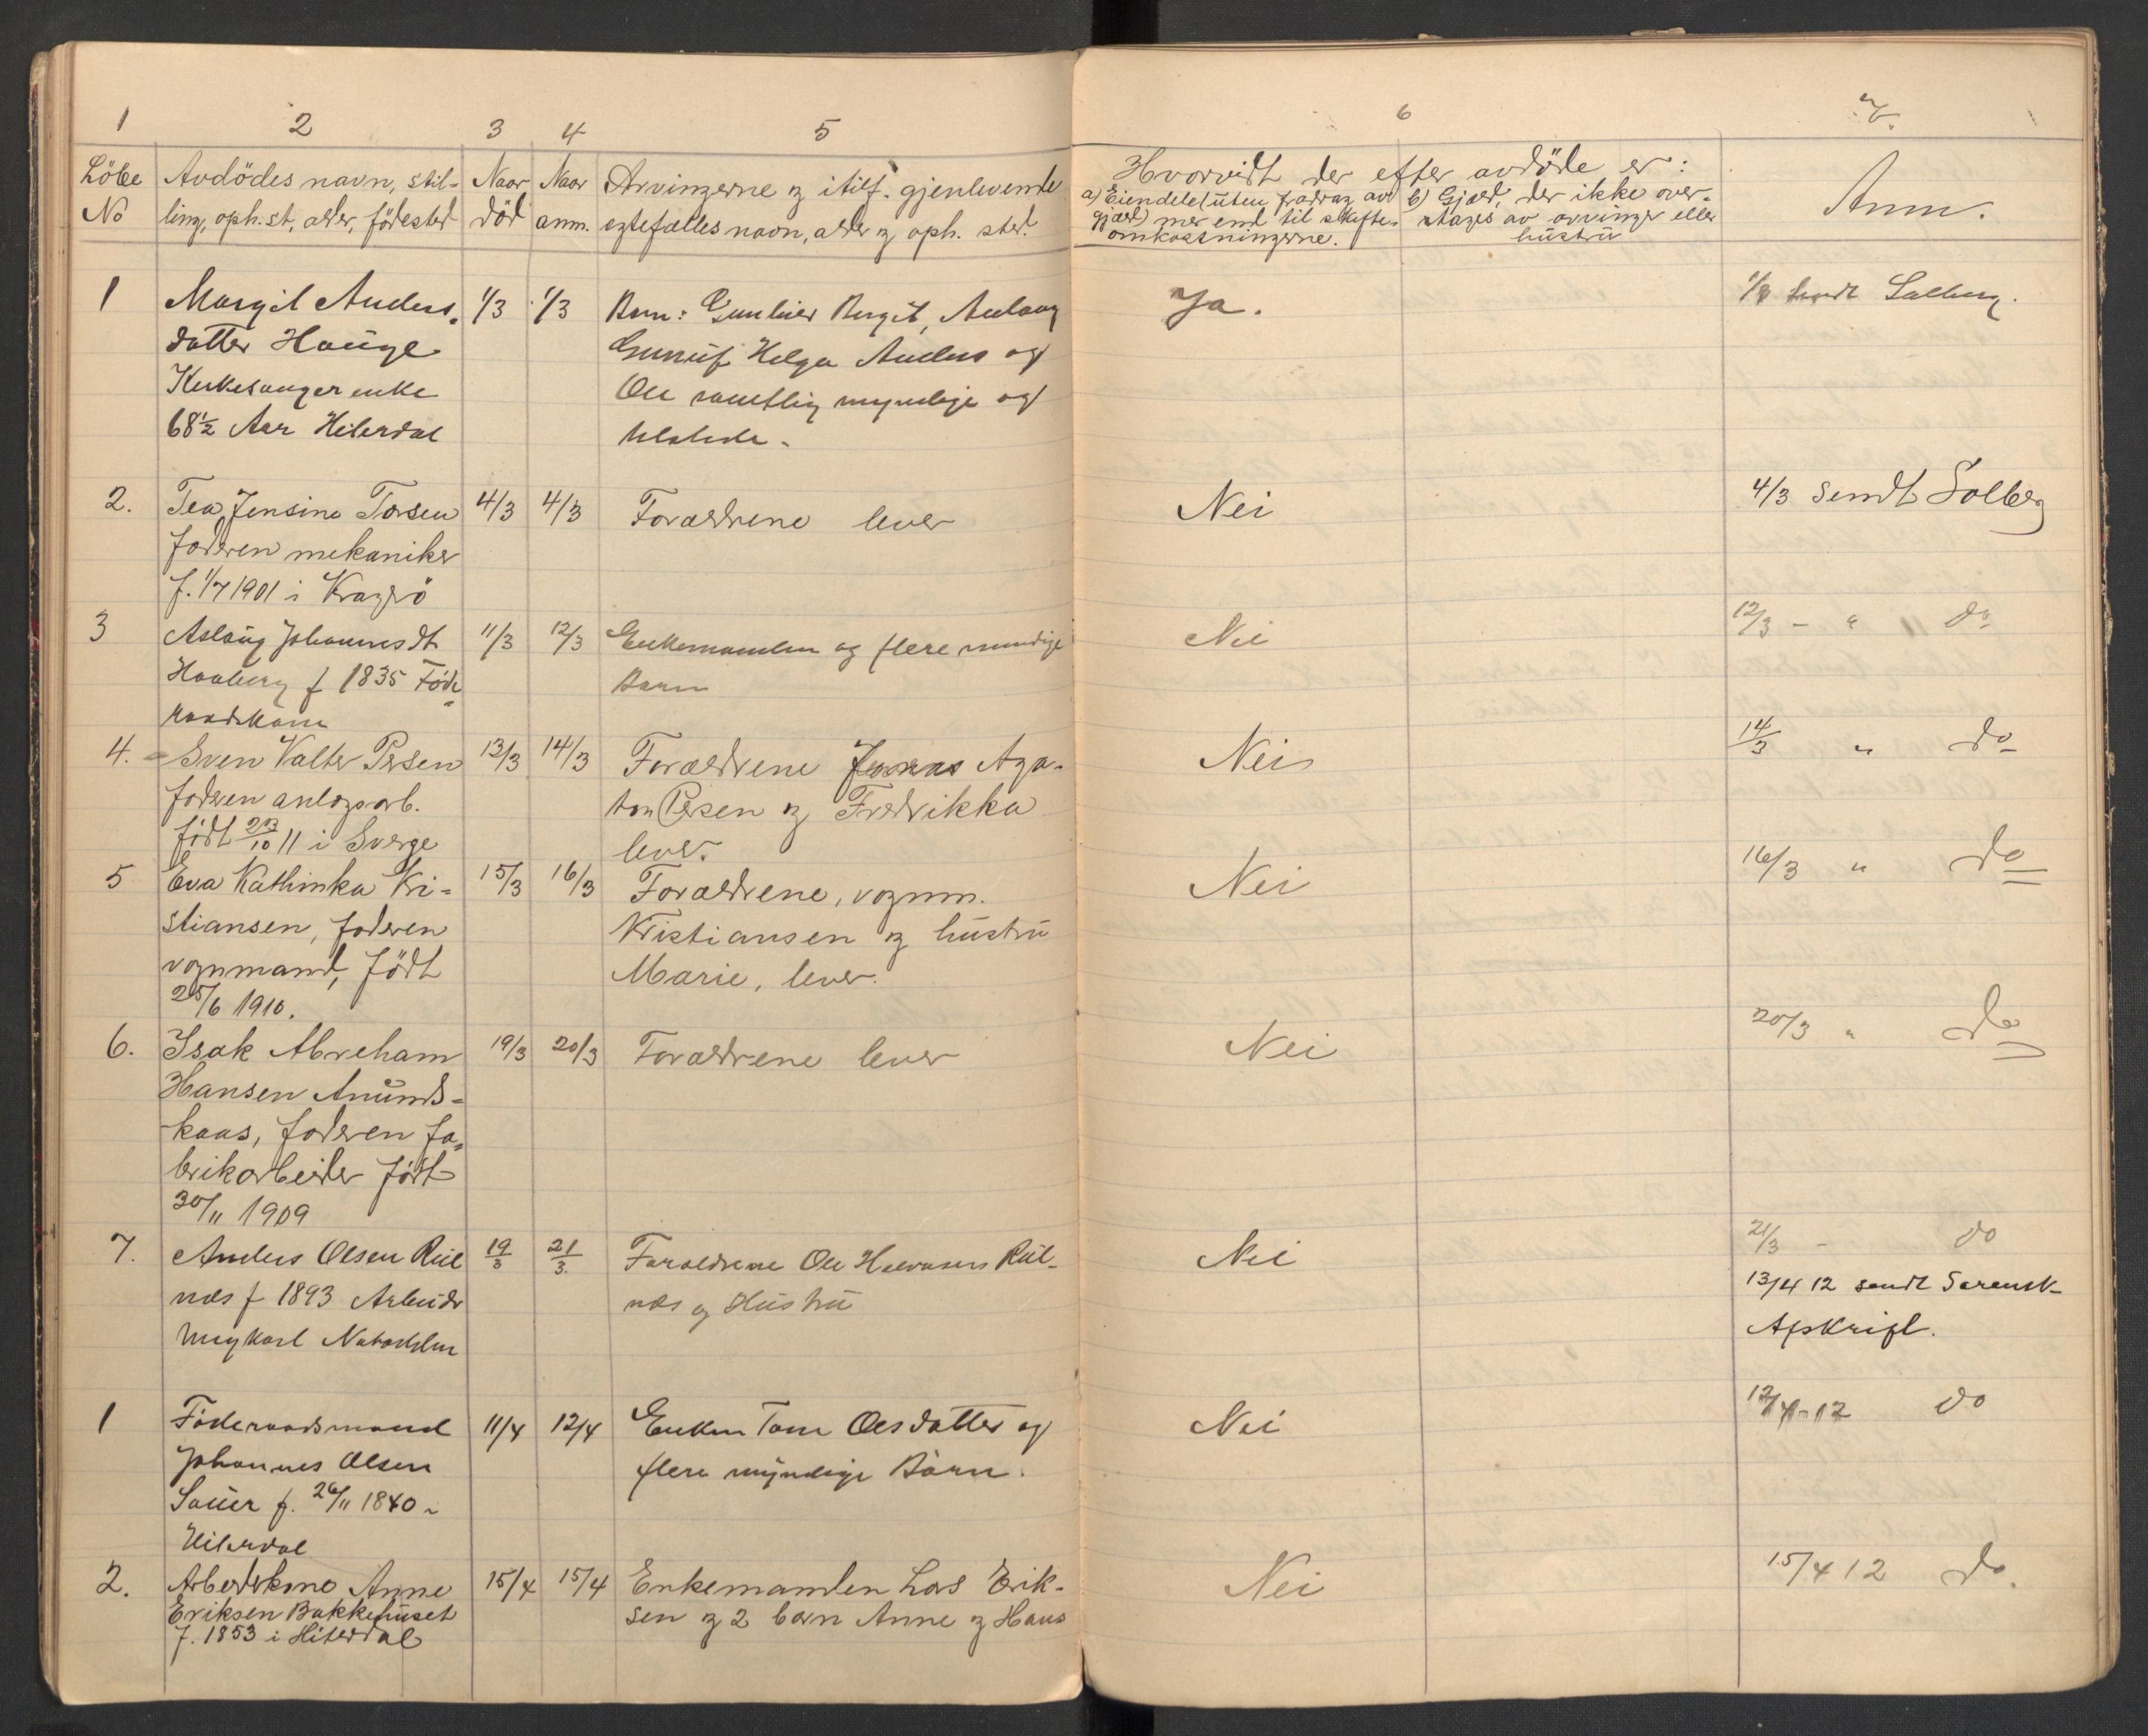 1 2 3 4 5 6 7.
Löbe Avdödes navn, stil- Naar Naar Arvingerne og i tilf. gjenlevende
No ling, oph.st, alder, födested död anm. egtefælles navn, alder og oph. sted.
Hvorvidt der efter avdöde er:
a) Eiendele (uten fradrag av b) Gjæld, der ikke over-
gjæld) mer end til skifte- tages av arvinger eller
omkostningerne. hustru
Anm.
1 Margit Anders- 1/3 1/3 Barn: Birgit, Aslaug Ja. 1/3 sendt Solberg.
datter Hauge Helga Anders og
Kirkesanger enke Ole samtlig myndige og
68½ Aar Hiterdal tilstede.
2. Tea Jensine Torsen 4/3 4/3 Forældrene lever Nei 4/3 sendt Solberg
faderen mekaniker
f. 1/7 1901 i Kragerö
3 Aslaug Johannesdt 11/3 12/3 Enkemanden og flere mundige Nei 12/3 - " do
Haaberg f 1835 Föde
raadskone Barn
4. Sven Valter Persen 13/3 14/3 Forældrene Jonas Aga- Nei 14/3 " do
faderen anlegsarb. ton Persen og Fredrikka
födt 23/10 11 i Sverge lever.
5 Eva Kathinka Kri- 15/3 16/3 Forældrene, vognm. Nei 16/3 " do
stiansen, faderen Kristiansen og hustru
vognmand, födt Marie, lever.
25/6 1910.
6. Isak Abreham 19/3 20/3 Forældrene lever Nei 20/3 " do
Hansen Anunds-
kaas, faderen fa-
brikarbeider födt
30/11 1909
7. Anders Olsen Rul 19/3 21/3 Forældrene Ole Halvorsen Rul- Nei 21/3 - do
nes f 1893 Arbeids nes og Hustru 13/4 12 sendt Sorensk-
ungkarl Notodden Afskrift.
1 Föderaadsmand 11/4 12/4 Enken Tone Olsdatter og Nei 12/4-12 do
Johannes Olsen flere myndige Börn.
Sauer f. 26/11 1840
Hiterdal
2. Arbedskone Anne 15/4 15/4 Enkemanden Lars Erik- Nei 15/4 12 do.
Eriksen Bakkehuset sen og 2 barn Anne og Hans
f. 1853 i Hiterdal